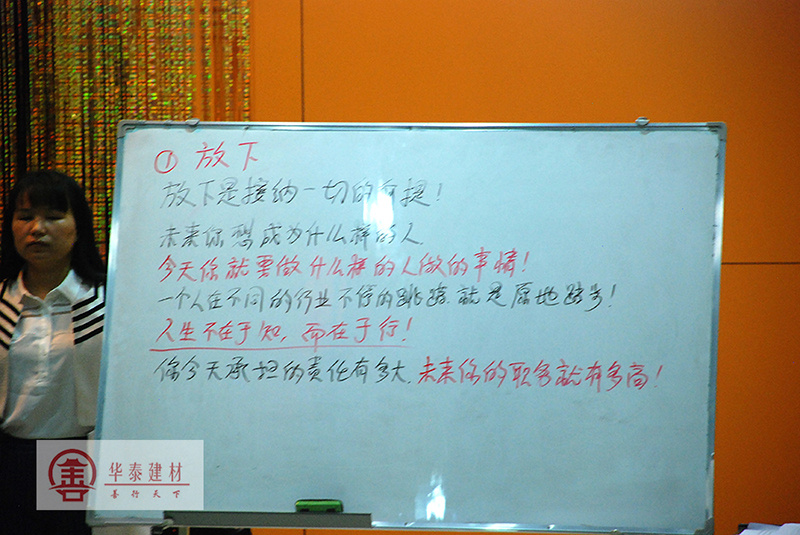 ① 放下
放下是接纳一切的前提！
未来你想成为什么样的人.
今天你就要做什么样的人做的事情！
一个人在不同的行业不停的跳踏就是原地踏步！
人生不在于知，而在于行！
你今天承担的责任有多大.未来你的职务就有多高！
华泰建材
善行天下